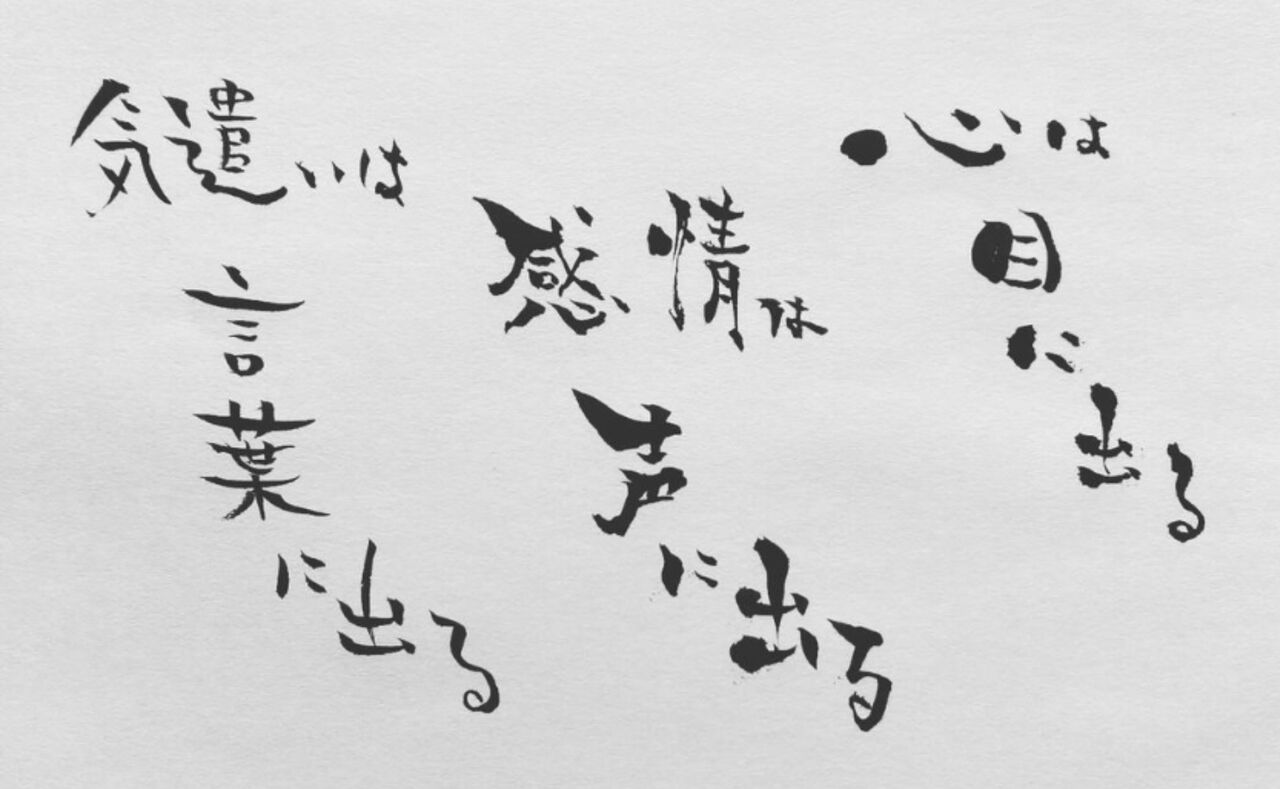 心は
目に出る
感情は
声に出る
気遣いは
言葉に出る